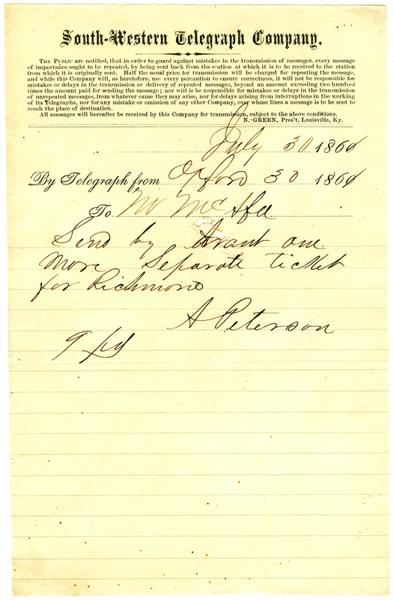 South-Western Telegraph Company.
THE PUBLIC are notified, that in order to guard against mistakes in the transmission of messages, every message
of importance ought to be repeated, by being sent back from the station at which it is to be received to the station
from which it is originally sent. Half the usual price for transmission will be charged for repeating the message,
and while this Company will, as heretofore, use every precaution to ensure correctness, it will not be responsible for
mistakes or delays in the transmission or delivery of repeated messages, beyond an amount exceeding two hundred
times the amount paid for sending the message; nor will it be responsible for mistakes or delays in the transmission
of unrepeated messages, from whatever cause they may arise, nor for delays arising from interruptions in the working
of its Telegraphs, nor for any mistake or omission of any other Company, over whose lines a message is to be sent to
reach the place of destination.
All messages will hereafter be received by this Company for transmission, subject to the above conditions.
N. GREEN, Pres't, Louisville, Ky.
July 30 1860
By Telegraph from Oxford 30 1860
To McAfee
Send by Grant one
more Separate ticket
for Richmond
A Peterson